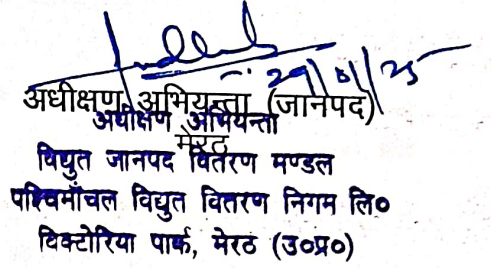 29/01/25
अधीक्षण अभियन्ता (जानपद)
अधीक्षण अभियन्ता
मेरठ
विद्युत जानपद वितरण मण्डल
पश्चिमाँचल विद्युत वितरण निगम लि०
विक्टोरिया पार्क, मेरठ (उ०प्र०)